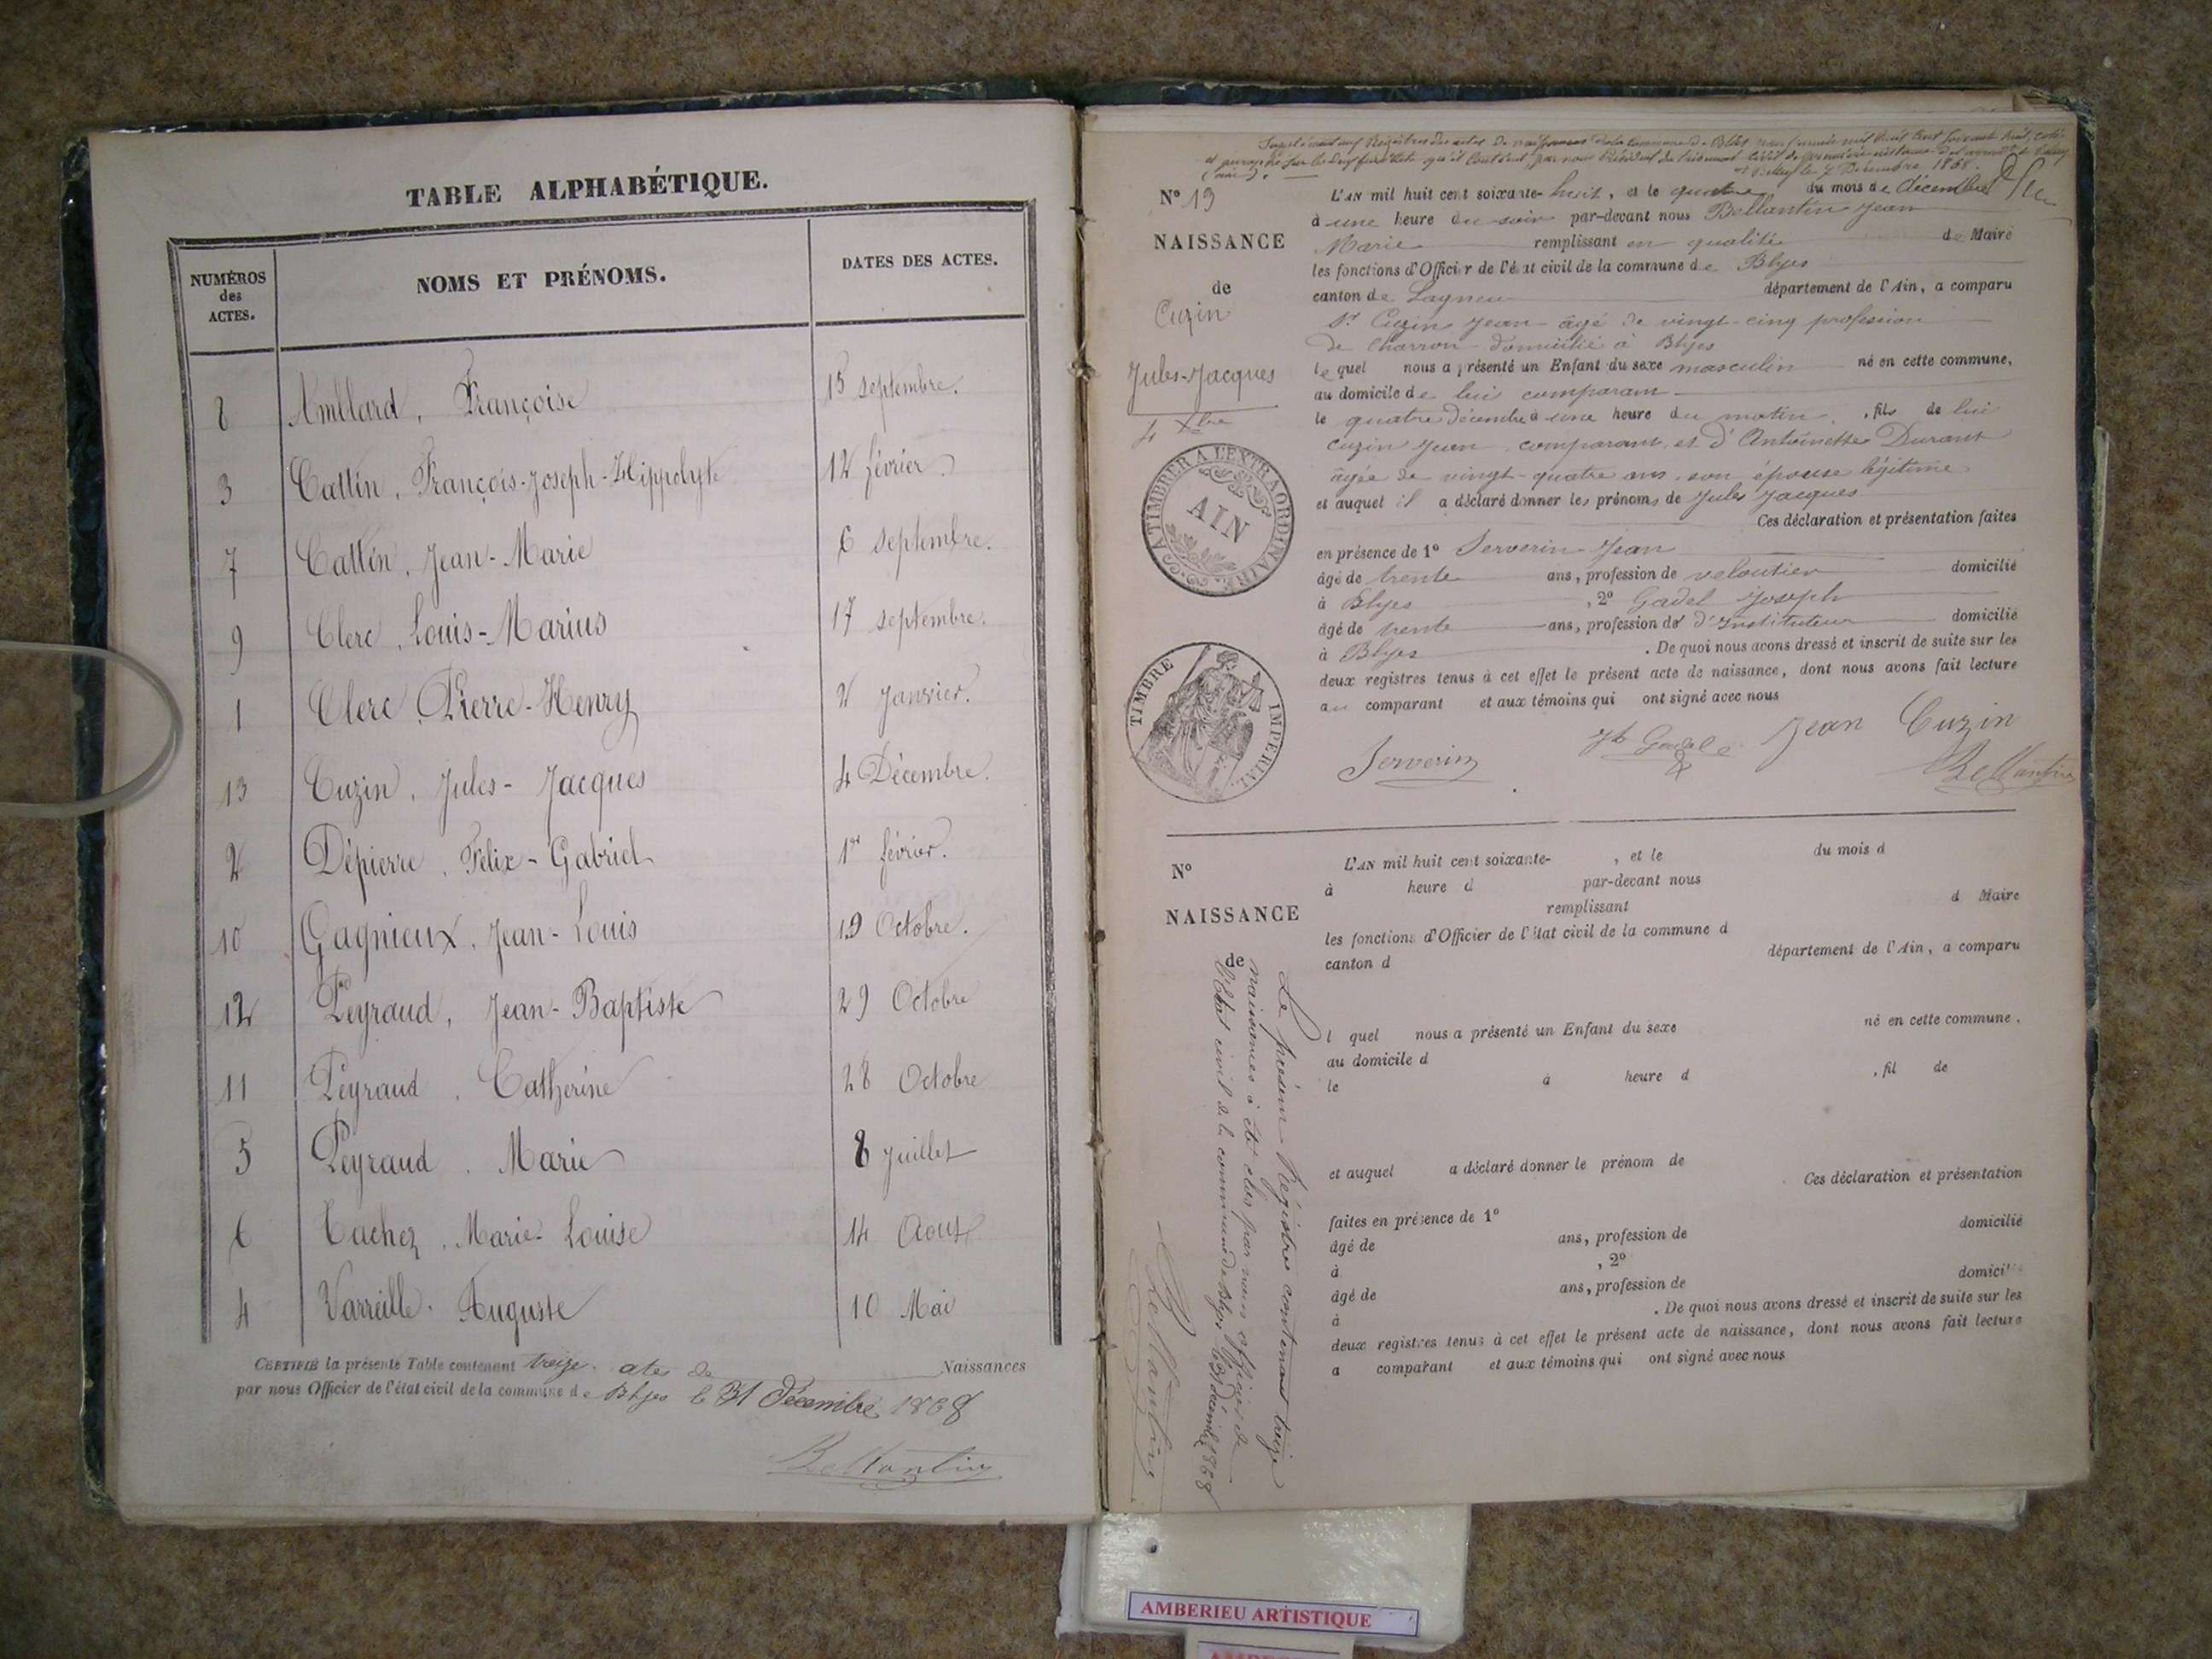 TABLE ALPHABÉTIQUE.
NUMÉROS des ACTES. NOMS ET PRÉNOMS. DATES DES ACTES.
8 Amblard, Françoise 15 septembre.
3 Cattin, François-Joseph-Hippolyte 12 février
7 Cattin, Jean-Marie 6 septembre.
9 Clerc, Louis-Marius 17 septembre.
1 Clerc, Pierre-Henry 2 Janvier.
13 Cuzin, Jules-Jacques 4 Décembre.
2 Dépierre, Félix-Gabriel 1er février.
10 Gagnieux, Jean-Louis 19 Octobre.
12 Peyraud, Jean-Baptiste 29 Octobre
11 Peyraud, Catherine 28 Octobre
5 Peyraud, Marie 8 Juillet
6 Tachez, Marie-Louise 14 Aout
4 Varreille, Auguste 10 Mai
CERTIFIÉ la présente Table contenant treize actes de Naissances
par nous Officier de l'état civil de la commune de Blyes le 31 Décembre 1868
Bellantin
Supplément aux Registres des actes de naissances de la Commune de Blyes pour l'année mil huit cent soixante huit, coté
et paraphé sur les deux feuillets qu'il contient, par nous Président du tribunal civil de première instance de l'arrondt de Belley
(Ain). à Belley le 2 Décembre 1868
N° 13
NAISSANCE
de
Cuzin
Jules-Jacques
4 Xbre
A TIMBRER A L'EXTRAORDINAIRE
AIN
TIMBRE IMPERIAL
L'AN mil huit cent soixante-huit, et le quatre du mois de décembre
à une heure du soir par-devant nous Bellantin Jean
Marie remplissant en qualité de Maire
les fonctions d'Officier de l'état civil de la commune de Blyes
canton de Lagneu département de l'Ain, a comparu
Sr Cuzin Jean âgé de vingt-cinq profession
de Charron domicilié à Blyes
lequel nous a présenté un Enfant du sexe masculin né en cette commune,
au domicile de lui comparant
le quatre Décembre à une heure du matin, fils de lui
Cuzin Jean, comparant, et d'Antoinette Durant
âgée de vingt-quatre ans, son épouse légitime
et auquel il a déclaré donner les prénoms de Jules Jacques
Ces déclaration et présentation faites
en présence de 1° Serverin Jean
âgé de trente ans, profession de veloutier domicilié
à Blyes, 2° Gadel Joseph
âgé de trente ans, profession de d'Instituteur domicilié
à Blyes. De quoi nous avons dressé et inscrit de suite sur les
deux registres tenus à cet effet le présent acte de naissance, dont nous avons fait lecture
au comparant et aux témoins qui ont signé avec nous
Serverin Jh Gadel Jean Cuzin
Bellantin
N°
NAISSANCE
de
L'AN mil huit cent soixante- , et le du mois d
à heure d par-devant nous
remplissant d Maire
les fonctions d'Officier de l'état civil de la commune d
canton d département de l'Ain, a comparu
l quel nous a présenté un Enfant du sexe né en cette commune,
au domicile d
le à heure d , fil de
et auquel a déclaré donner le prénom de
Ces déclaration et présentation
faites en présence de 1°
âgé de ans, profession de domicilié
à , 2°
âgé de ans, profession de domicilié
à . De quoi nous avons dressé et inscrit de suite sur les
deux registres tenus à cet effet le présent acte de naissance, dont nous avons fait lecture
a comparant et aux témoins qui ont signé avec nous
Le présent Régistre contenant treize
naissances à été clos par nous officier de
l'Etat civil de la commune de Blyes le 31 décembre 1868
Bellantin
AMBERIEU ARTISTIQUE